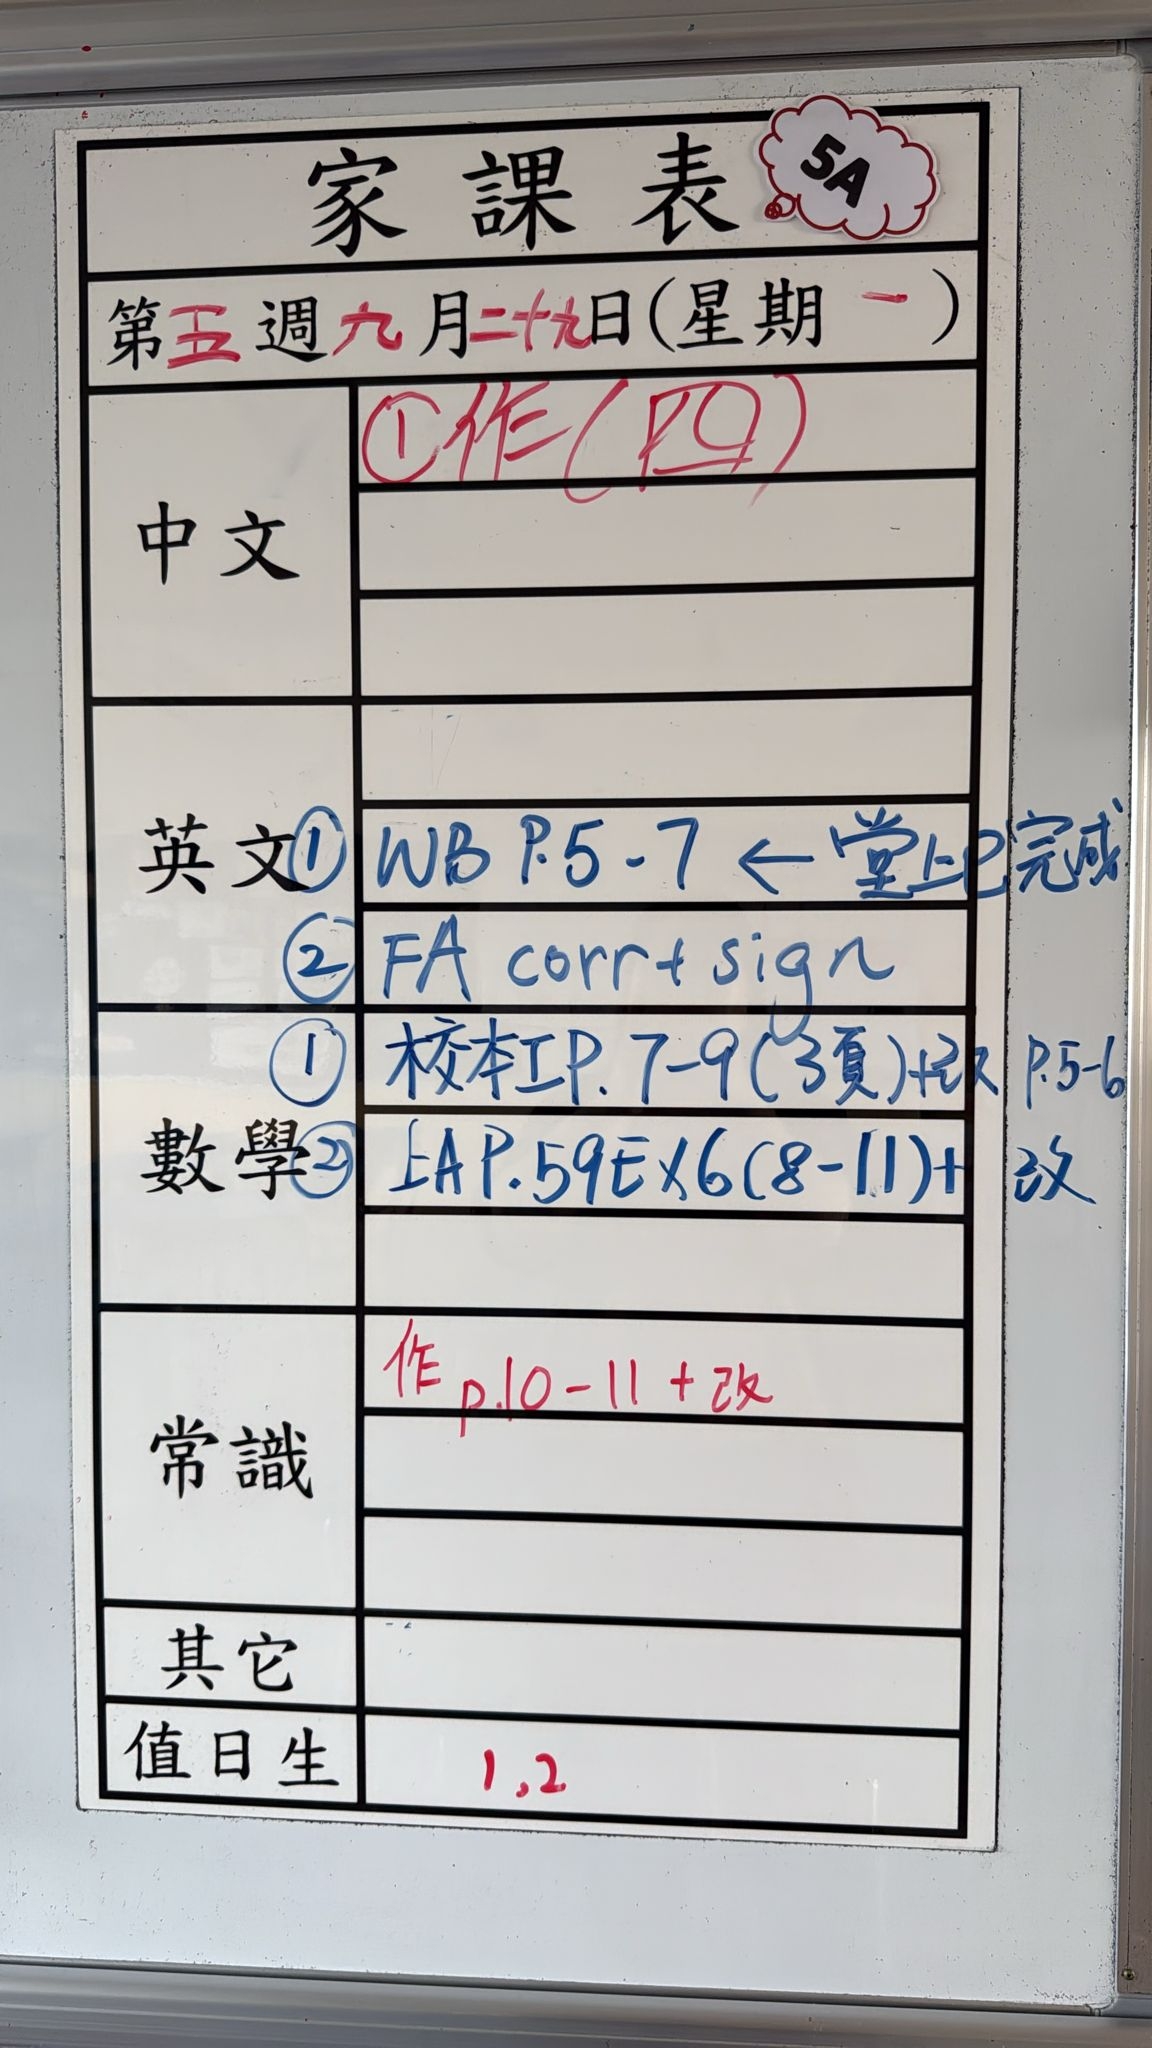 家課表 5A
第五週九月二十九日(星期一)
中文
①作(四)
英文
① WB P.5-7 ← 堂上已完成
② FA corr+ sign
數學
① 校本工P. 7-9(3頁)+改 P.5-6
② 上A P.59 Ex6(8-11)+改
常識
作 p.10-11+改
其它
值日生
1,2